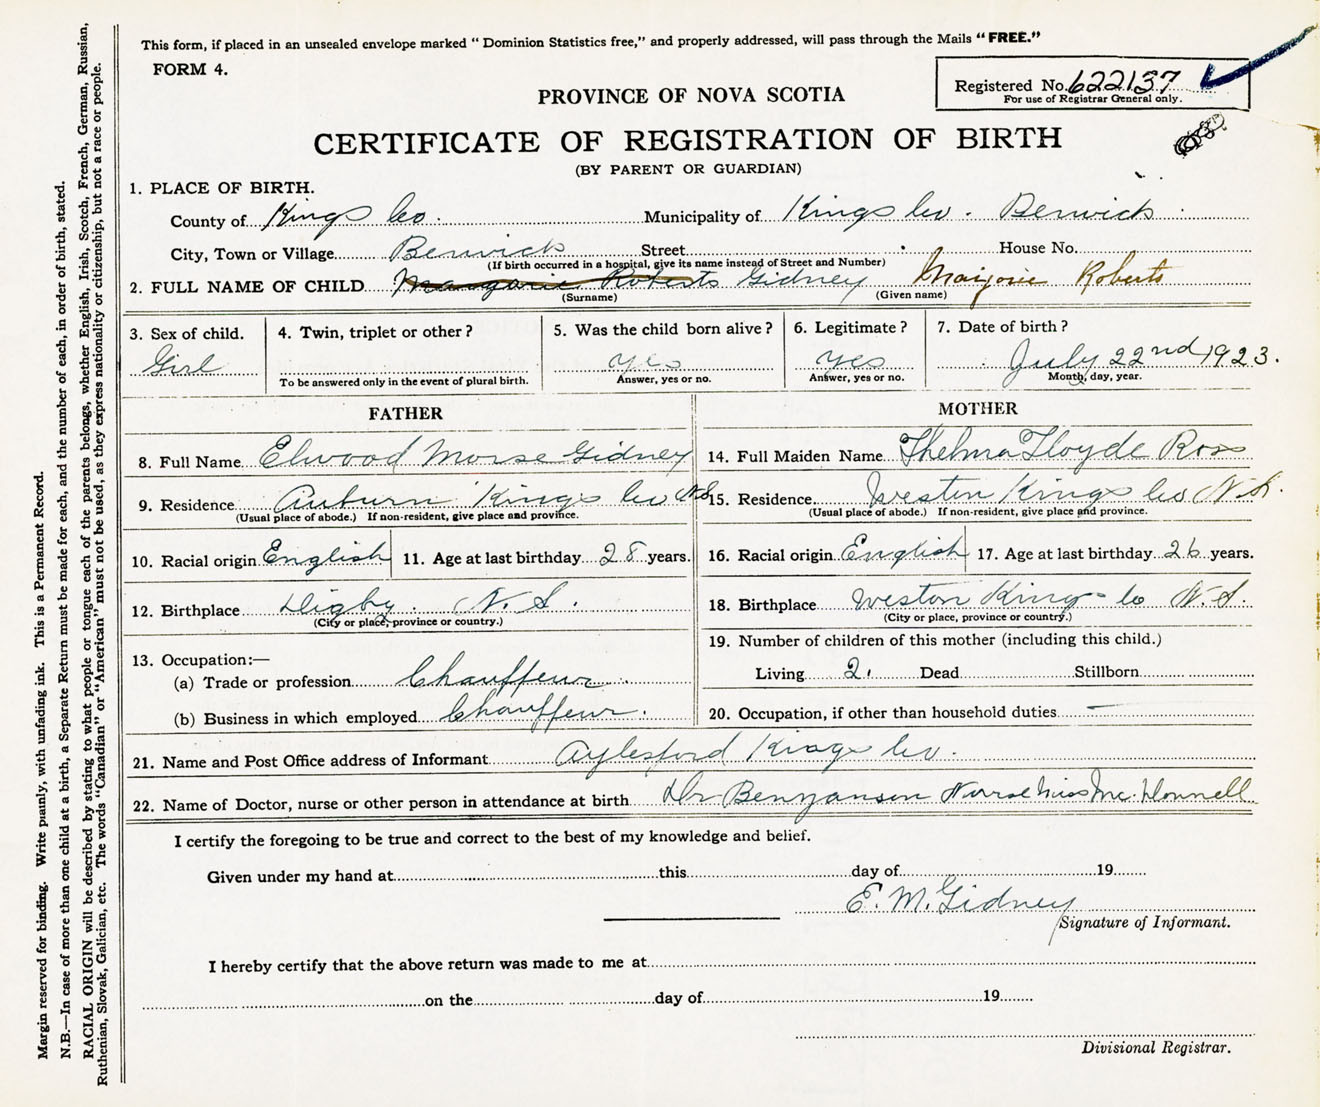 This form, if placed in an unsealed envelope marked "Dominion Statistics free," and properly addressed, will pass through the Mails "FREE."
FORM 4.
Registered No. 622137
For use of Registrar General only.
PROVINCE OF NOVA SCOTIA
CERTIFICATE OF REGISTRATION OF BIRTH
(BY PARENT OR GUARDIAN)
1. PLACE OF BIRTH.
County of Kings Co. Municipality of Kings Co. Berwick
City, Town or Village Berwick Street House No.
(If birth occurred in a hospital, give its name instead of Street and Number)
2. FULL NAME OF CHILD Margarie Roberts Gidney Marjorie Roberts
(Surname) (Given name)
3. Sex of child. 4. Twin, triplet or other? 5. Was the child born alive? 6. Legitimate? 7. Date of birth?
Girl yes yes July 22nd 1923.
To be answered only in the event of plural birth. Answer, yes or no. Answer, yes or no. Month, day, year.
FATHER MOTHER
8. Full Name Elwood Morse Gidney 14. Full Maiden Name Thelma Floyde Ross
9. Residence Auburn Kings Co N.S. 15. Residence Weston Kings Co N.S.
(Usual place of abode.) If non-resident, give place and province. (Usual place of abode.) If non-resident, give place and province.
10. Racial origin English 11. Age at last birthday 28 years. 16. Racial origin English 17. Age at last birthday 26 years.
12. Birthplace Digby. N.S. 18. Birthplace Weston Kings Co N.S.
(City or place, province or country.) (City or place, province or country.)
13. Occupation:— 19. Number of children of this mother (including this child.)
(a) Trade or profession Chauffeur Living 2. Dead Stillborn
(b) Business in which employed Chauffeur. 20. Occupation, if other than household duties —
21. Name and Post Office address of Informant Aylesford Kings Co.
22. Name of Doctor, nurse or other person in attendance at birth Dr Benjanson Nurse Miss Mc.Donnell
I certify the foregoing to be true and correct to the best of my knowledge and belief.
Given under my hand at this day of 19
E. M. Gidney
Signature of Informant.
I hereby certify that the above return was made to me at
on the day of 19
Divisional Registrar.
Margin reserved for binding. Write plainly, with unfading ink. This is a Permanent Record.
N.B.—In case of more than one child at a birth, a Separate Return must be made for each, and the number of each, in order of birth, stated.
RACIAL ORIGIN will be described by stating to what people or tongue each of the parents belongs, whether English, Irish, Scotch, French, German, Russian,
Ruthenian, Slovak, Galician, etc. The words "Canadian" or "American" must not be used, as they express nationality or citizenship, but not a race or people.